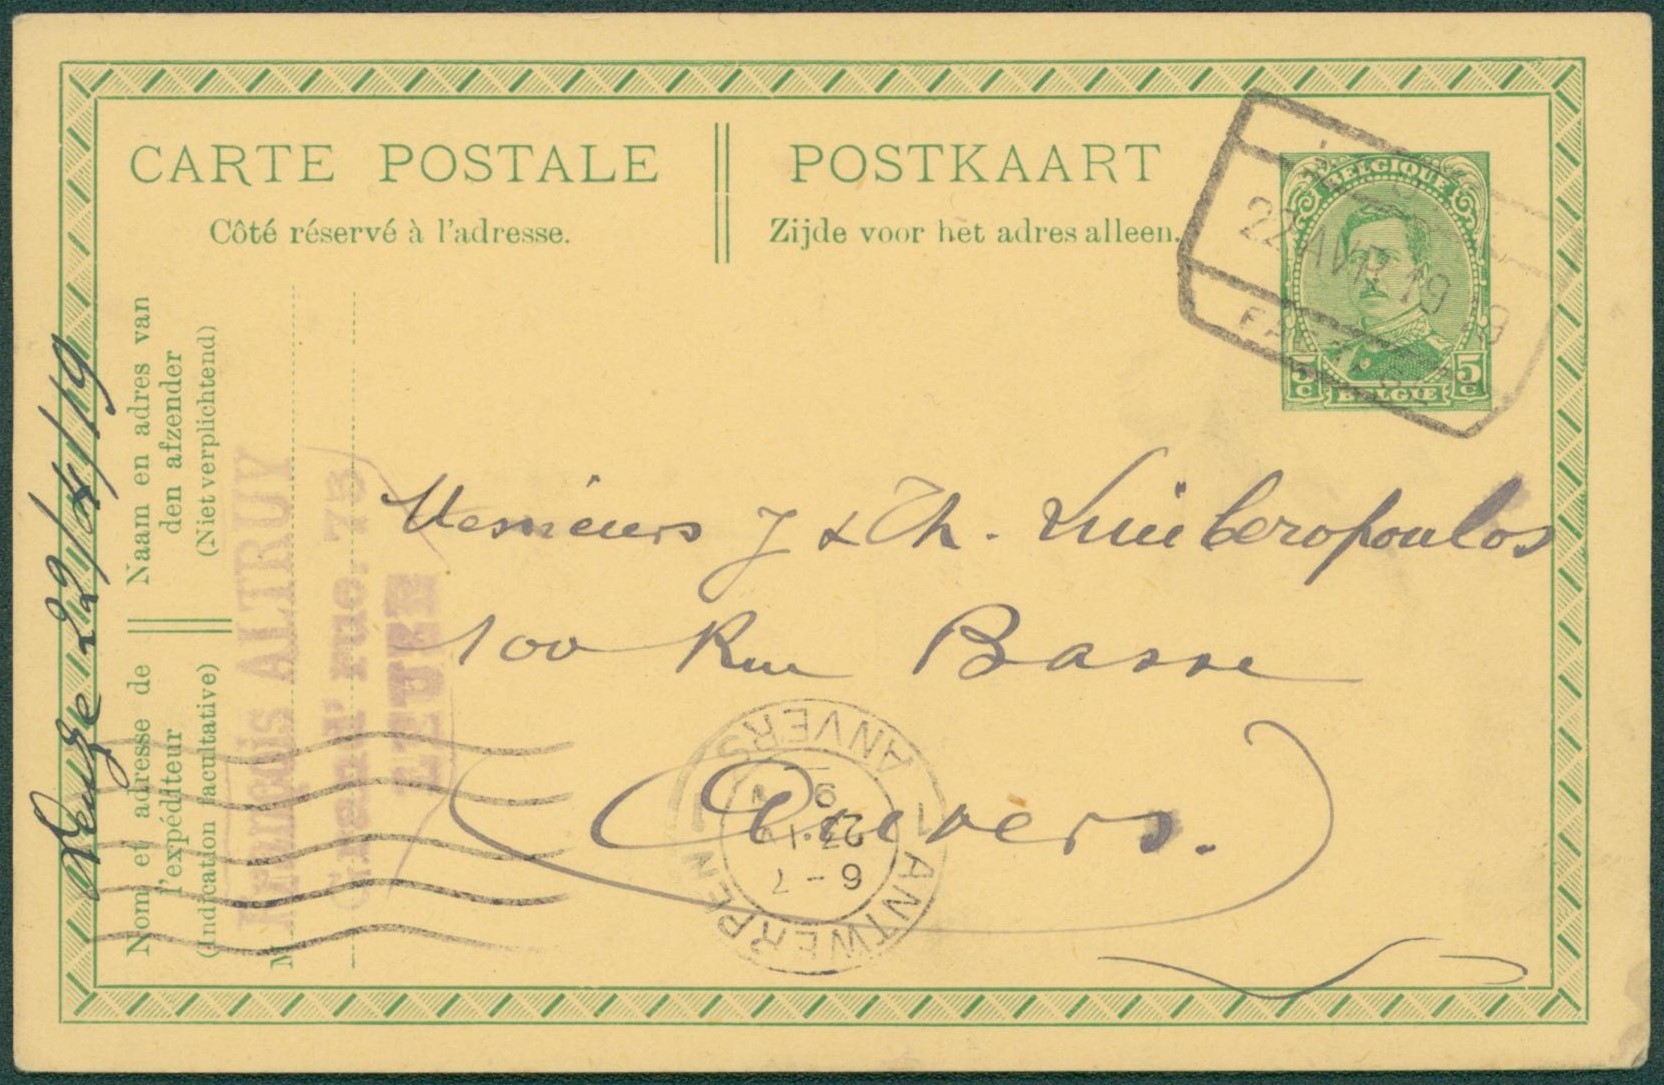 CARTE POSTALE
Côté réservé à l'adresse.
POSTKAART
Zijde voor het adres alleen.
BELGIQUE
5 c 5 c
BELGIE
22 AVR 19
Naam en adres van
den afzender
(Niet verplichtend)
Nom et adresse de
l'expéditeur
(Indication facultative)
M
22/04/19
François ALTRUY
Grand' rue, 75
LEUZE
Messieurs J & Th.
100 Rue Basse
Anvers.
ANTWERPEN 1
1 ANVERS
6-7
23.IV